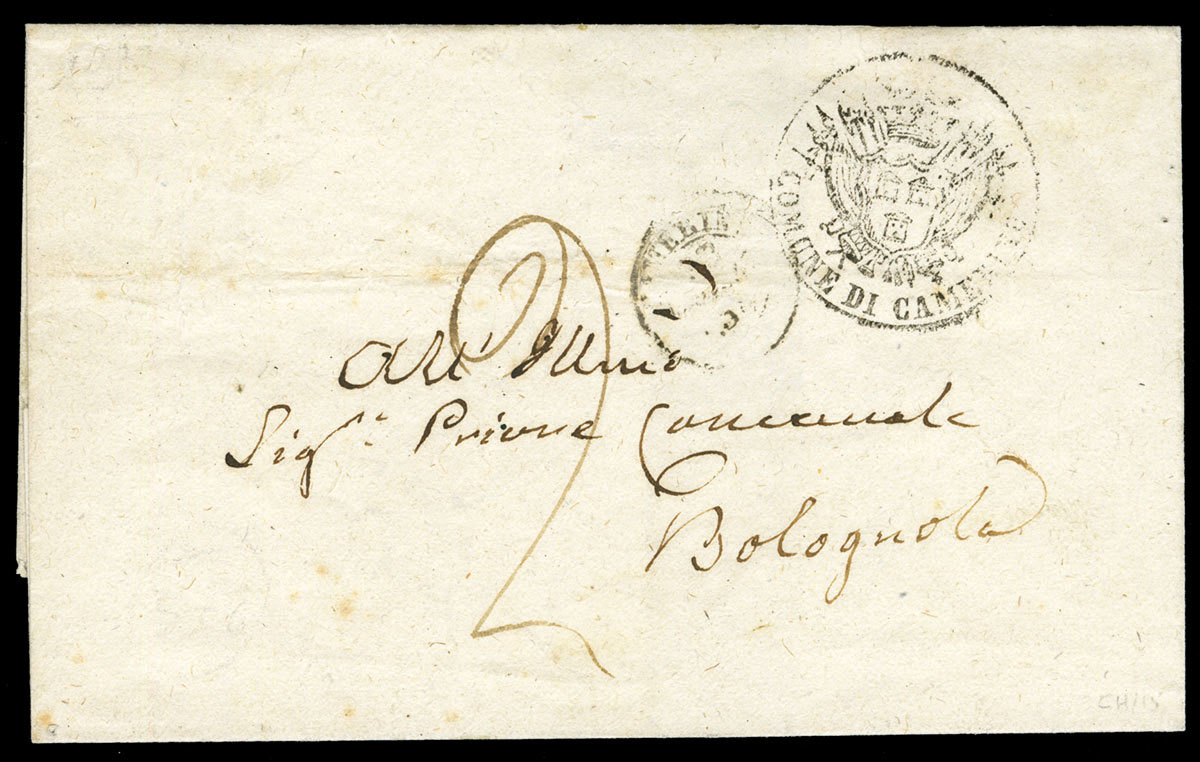 COMUNE DI CAMERINO
2
All' Illmo
Sigr. Priore Comunale
Bolognola
CH/15